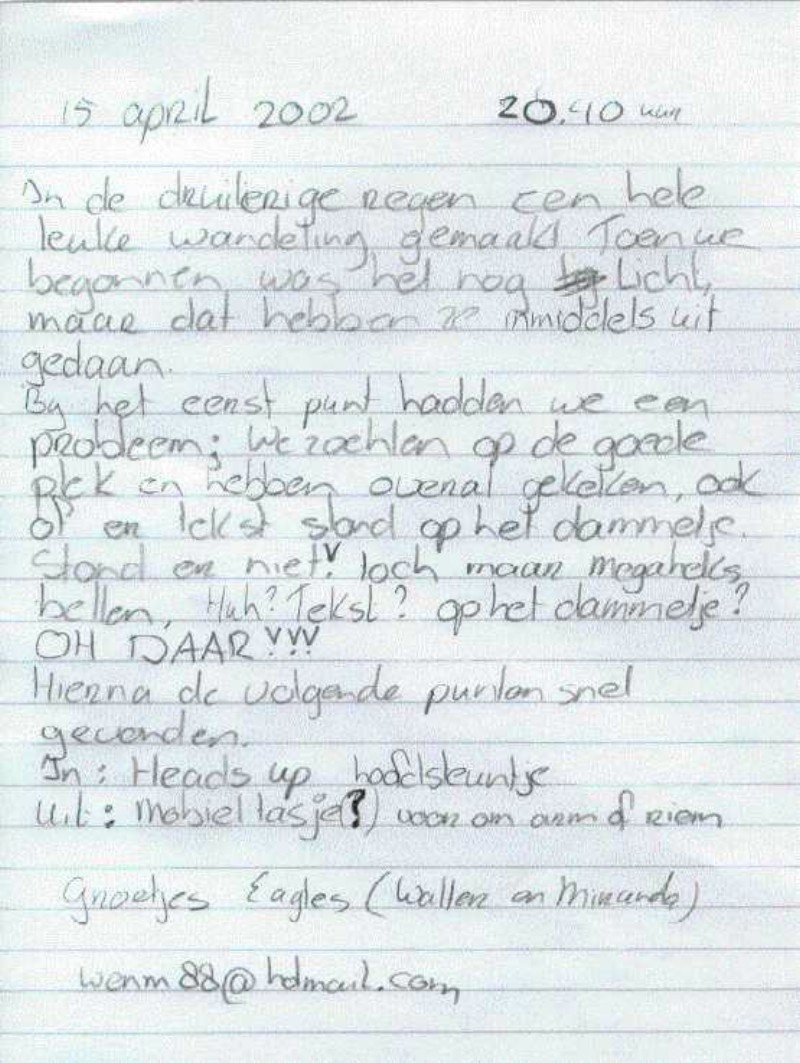 15 april 2002 20.40 uur
In de druilerige regen een hele
leuke wandeling gemaakt Toen we
begonnen was het nog licht,
maar dat hebben ze inmiddels uit
gedaan.
By het eerst punt hadden we een
probleem; We zochten op de goede
plek en hebben overal gekeken, ook
of er tekst stond op het dammetje.
Stond er niet! Toch maar megaheks
bellen, Huh? Tekst? op het dammetje?
OH DAAR!!!
Hierna de volgende punten snel
gevonden.
In: Heads up hoofdsteuntje
Uit: Mobiel tasje(?) voor om arm of riem
Groetjes Eagles (Walter en Miranda)
wenm88@hotmail.com